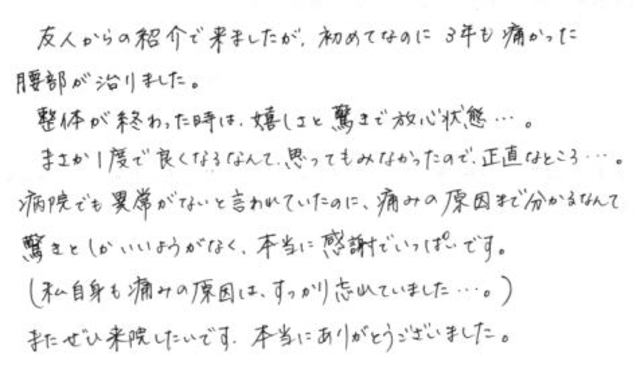 友人からの紹介で来ましたが、初めてなのに3年も痛かった
腰部が治りました。
整体が終わった時は、嬉しさと驚きで放心状態…。
まさか1度で良くなるなんて、思ってもみなかったので、正直なところ…。
病院でも異常がないと言われていたのに、痛みの原因まで分かるなんて
驚きとしかいいようがなく、本当に感謝でいっぱいです。
(私自身も痛みの原因は、すっかり忘れていました…。)
またぜひ来院したいです。本当にありがとうございました。